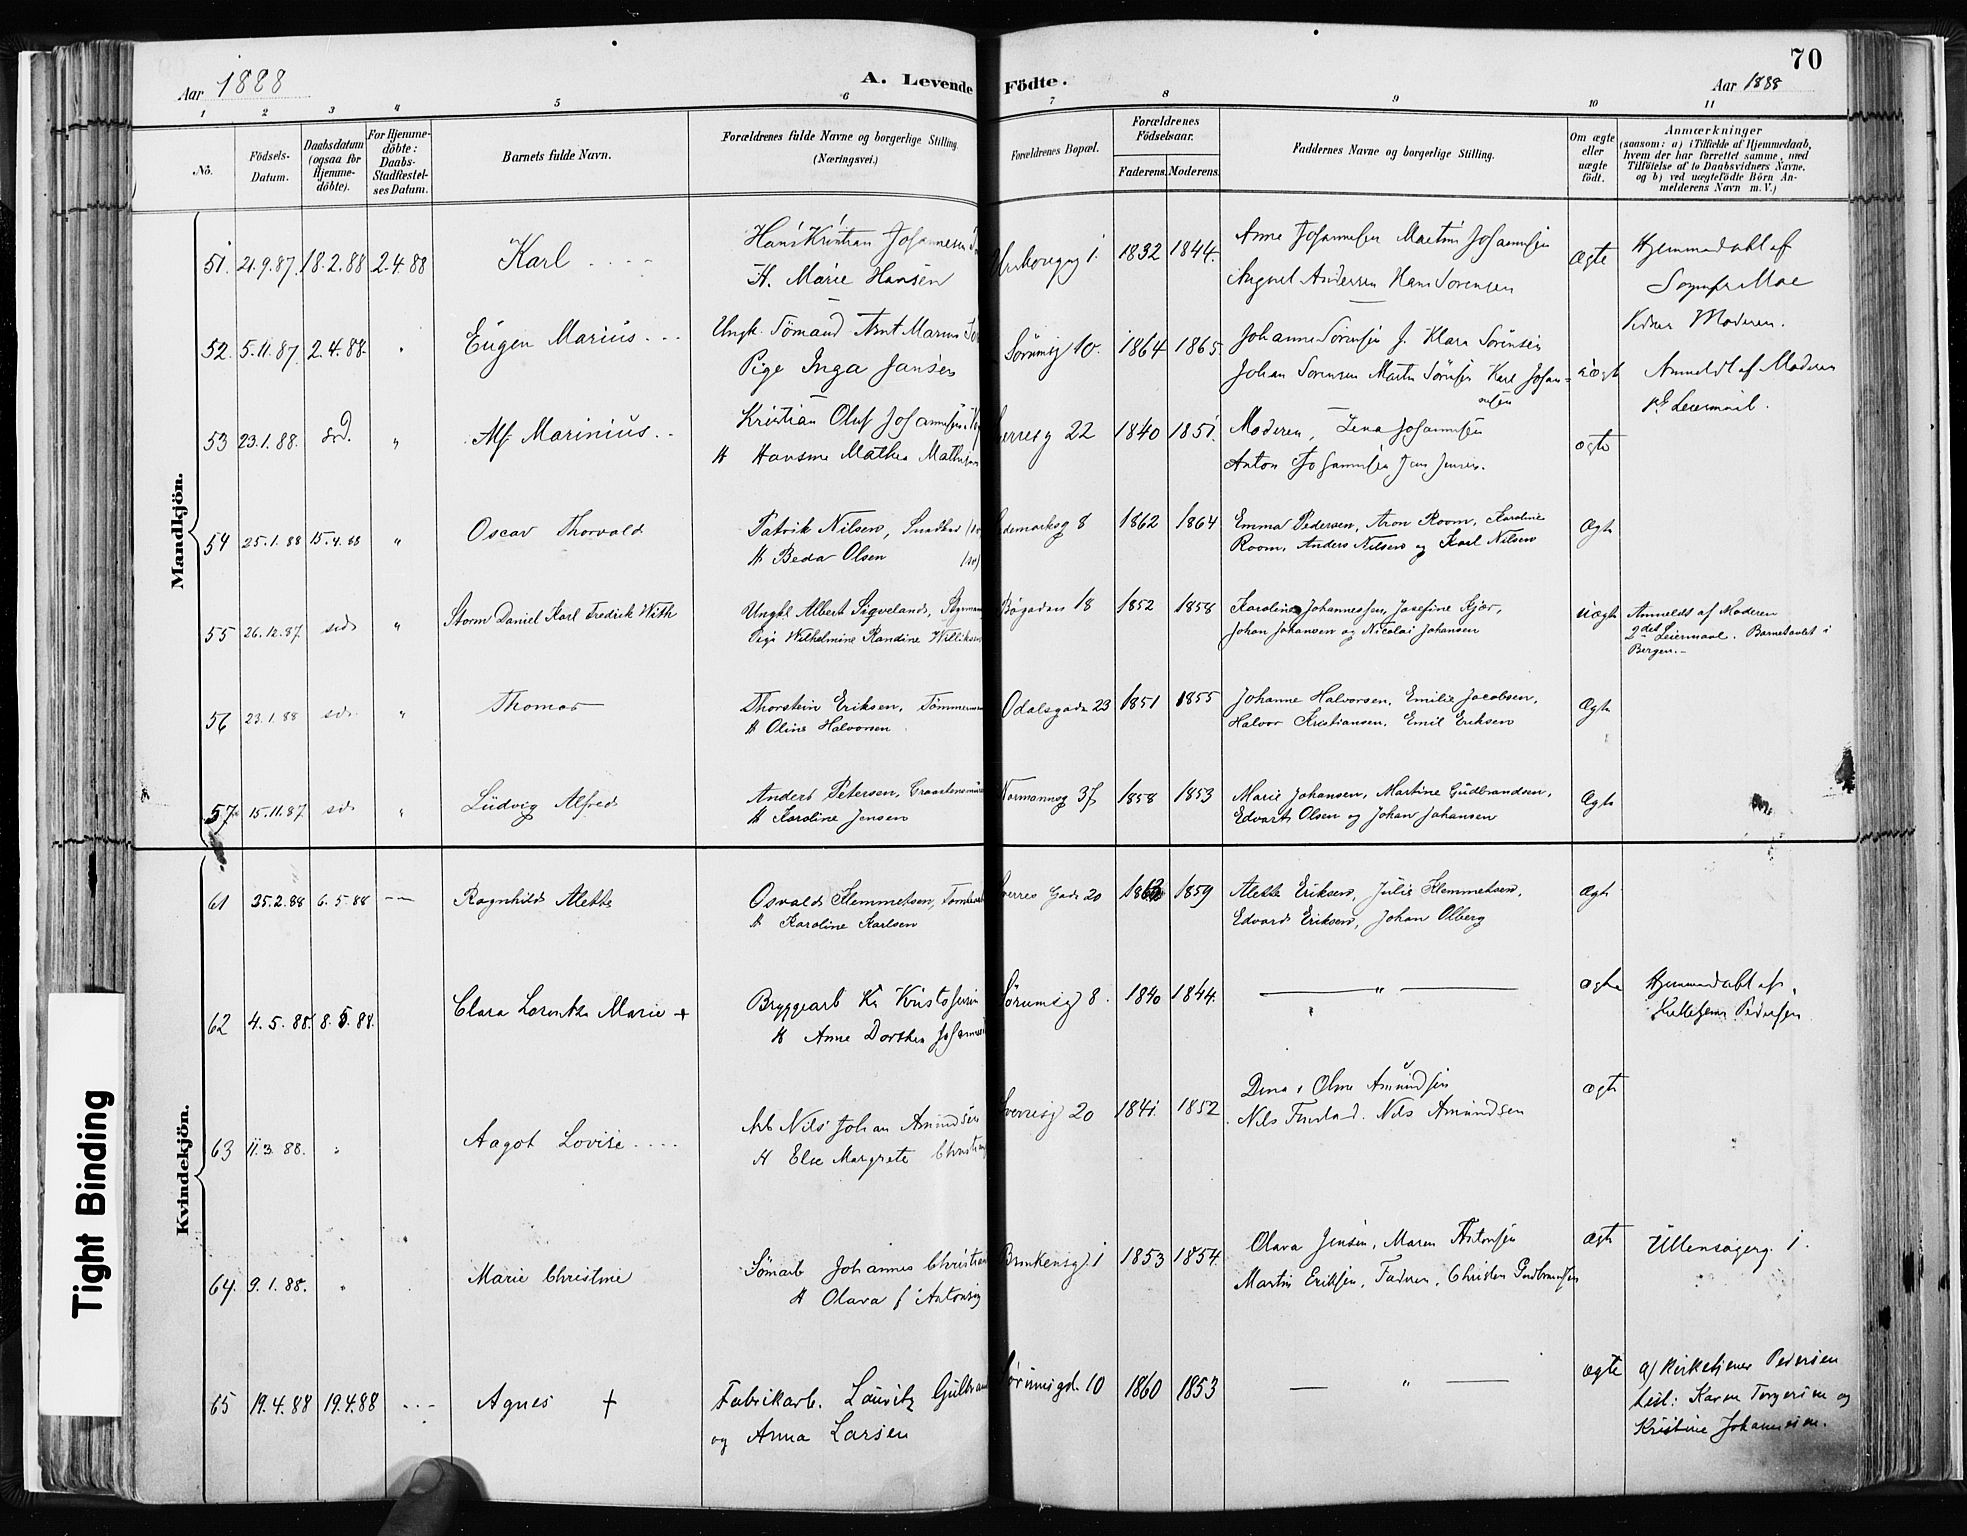 70
Aar 1888
A. Levende Födte.
Aar 1888
1 2 3 4 5 6 7 8 9 10 11
No.
Födsels-Datum.
Daabsdatum (ogsaa for Hjemme-döbte).
For Hjemme-döbte: Daabs-Stadfæstel-ses Datum.
Barnets fulde Navn.
Forældrenes fulde Navne og borgerlige Stilling
(Næringsvei.)
Forældrenes Bopæl.
Forældrenes Födselsaar.
Faderens. Moderens.
Faddernes Navne og borgerlige Stilling.
Om ægte eller uægte födt.
Anmærkninger
(saasom: a) i Tilfælde af Hjemmedaab,
hvem der har forrettet samme, med
Tilföielse af to Daabsvidners Navne,
og b) ved uægtefödte Börn An-
melderens Navn m. V.)
Mandkjön.
51. 21.9.87. 18.2.88 2.4.88 Karl
Hans Kristian Johannesen
H. Marie Hansen
1. 1832 1844.
Anne Johannesen Martin Johannesen
August Andersen Hans Sorensen
Ægte
Hjemmedøbt af
Moe
52. 5.11.87. 2.4.88. Eugen Marius
Ungk. Sömand Arnt Marius
Pige Inga Jansen
10. 1864 1865.
Johanne Sorensen J. Klara Sörensen
Johan Sorensen Martin Sörensen Karl Johan-
nesen
uægte
Moderen.
Anmeldt af Moderen
Leiermaal.
53 23.1.88. " Alf Marinius
Kristian Oluf Johannesen
H Hansine Mathea Mathisen
22 1840 1851.
Moderen, Lena Johannesen
Anton Johannesen Jens Jensen.
ægte
54 25.1.88 15.4.88 " Oscar Thorvald
Patrik Nilsen,
H Beda Olsen
8 1862 1864
Emma Pedersen, Aron Room, Karoline
Room, Anders Nilsen og Karl Nilsen
Ægte
55 26.12.87. " Storm Daniel Karl Fredrik With
Ungkl Albert Sigveland, Styrmand
Pige Wilhelmine Randine Williksen
Bögaden 18 1852 1858
Karoline Johannessen, Josefine Kjær,
Johan Johansen og Nicolai Johansen
uægte
Anmeldt af Moderen
2det Leiermaal. Barnet avlet i
Bergen.-
56 23.1.88 " Thomas
Thorstein Eriksen, Tömmermand
H Oline Halvorsen
Odalsgade 23 1851 1855
Johanne Halvorsen, Emilie Jacobsen,
Halvor Kristiansen, Emil Eriksen
Ægte
57. 15.11.87. " Ludvig Alfred
Anders Petersen,
H Karoline Jensen
Normannsg 37 1858 1853
Marie Johansen, Martine Gudbrandsen,
Edvart Olsen og Johan Johansen
Ægte
Kvindekjön.
61 25.2.88 6.5.88 Ragnhild Alette
Osvald Klemmetsen,
H Karoline Karlsen
Sverres Gade 20 1859
Alette Eriksen, Julie Klemmetsen,
Edvard Eriksen, Johan Olberg
Ægte
62 4.5.88. 8.5.88. Clara Lorentze Marie +
Bryggearb Kr Kristofersen
H Anne Dorthea Johannesen
Sörumsg 8. 1840 1844.
"
ægte
Hjemmedøbt af
Pedersen
63 11.3.88. " Aagot Lovise
Arb Nils Johan Amundsen
H Else Margrete
Sverresg 20 1841. 1852
Dina, Oline Amundsen
Nils Nils Amundsen
ægte
64. 9.1.88. " Marie Christine
Johannes Christian
H Olava Antonsen
1 1853 1854.
Olava Jensen, Maren Antonsen
Martin Eriksen, Faderen, Christen Gudbrandsen
ægte
Ullensagerg. 1.
65 19.4.88 19.4.88 Agnes +
Fabrikarb. Lauritz
og Anna Larsen
10 1860 1853
"
ægte
af Kirketjener Pedersen
Karen Torgersen og
Kristine Johannesen.
Tight Binding